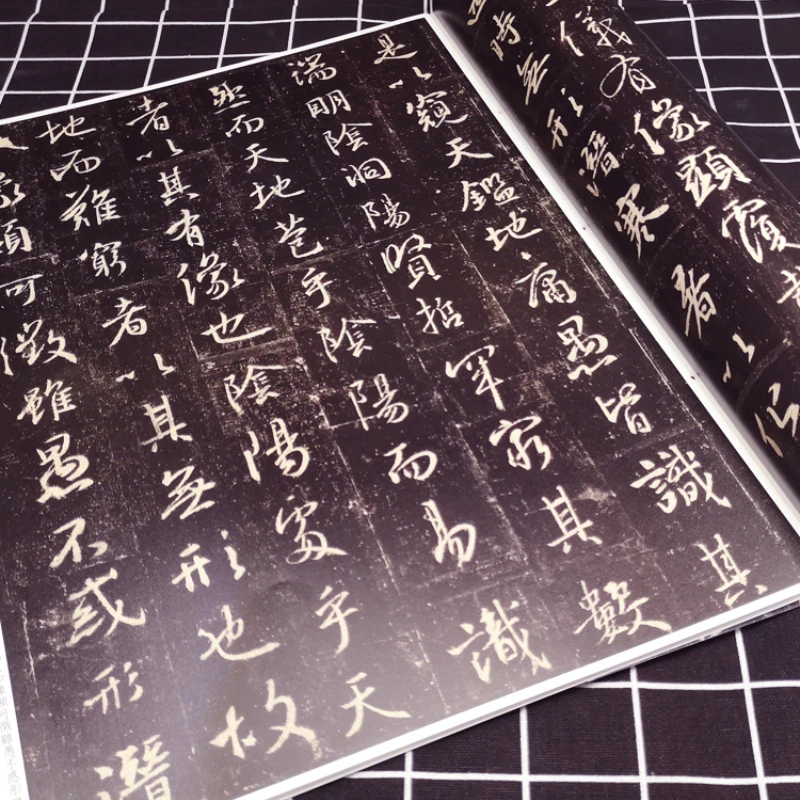 儀有像顯覆
時無形潛寒暑以化
是以窺天鑑地庸愚皆識其
端明陰洞陽賢哲罕窮其數
然而天地苞乎陰陽而易識
者以其有像也陰陽處乎天
地而難窮者以其無形也故
像顯可徵雖愚不惑形潛